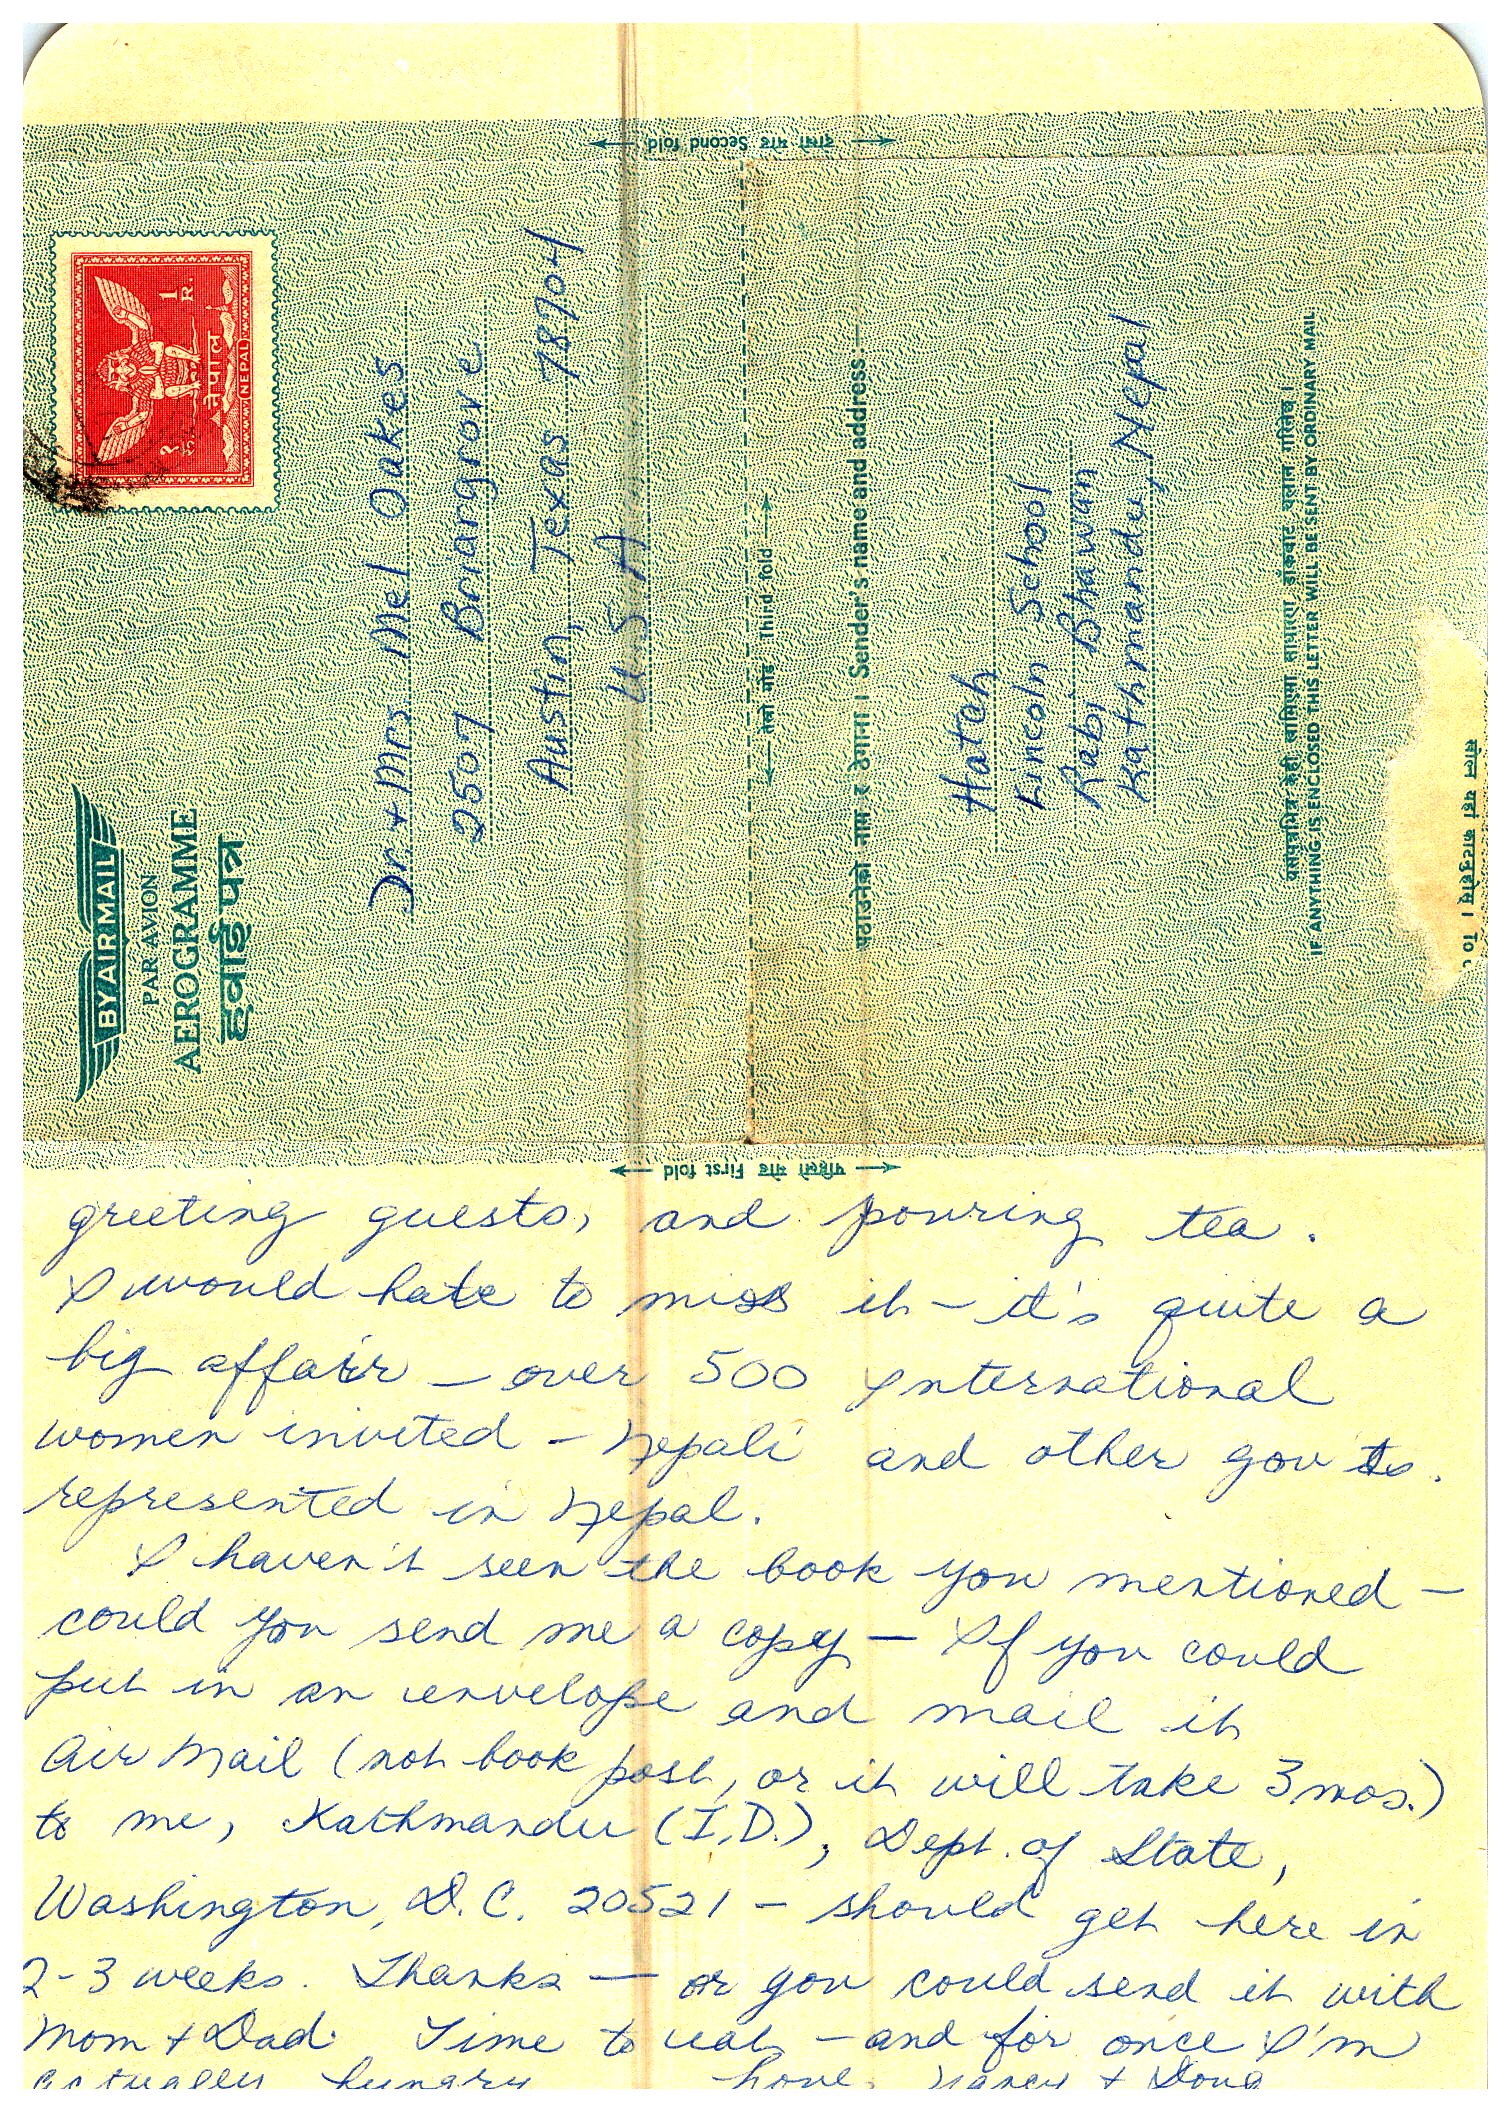 दोस्रो मोड Second fold
१ रु.
नेपाल
(NEPAL)
1 R.
BY AIR MAIL
PAR AVION
AEROGRAMME
हवाईपत्र
Dr. + Mrs Mel Oakes
2507 Briargrove
Austin, Texas 78704
U.S.A
तेस्रो मोड Third fold
पठाउनेको नाम र ठेगाना । Sender's name and address:—
Hatch
Lincoln School
Rabi Bhawan
Kathmandu, Nepal
यसपत्रभित्र केही हालिएमा साधारण डाकबाट चलान गरिनेछ ।
IF ANYTHING IS ENCLOSED THIS LETTER WILL BE SENT BY ORDINARY MAIL
खोल्न यहाँ काट्नुहोस् । To
पहिलो मोड First fold
greeting guests, and pouring tea.
I would hate to miss it – it's quite a
big affair – over 500 International
women invited – Nepali and other gov'ts.
represented in Nepal.
I haven't seen the book you mentioned –
could you send me a copy – If you could
put in an envelope and mail it
Air Mail (not book post, or it will take 3 mos.)
to me, Kathmandu (I.D.), Dept. of State,
Washington, D.C. 20521 – should get here in
2-3 weeks. Thanks — or you could send it with
Mom + Dad. Time to eat – and for once I'm
actually hungry Love, Nancy + Doug